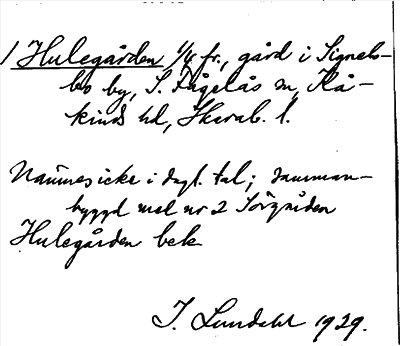 1 Hulegården 1/4 fr., gård i Signebs-
bo by, S. Fågelås sn, Kå-
kinds hd, Skarab. l.
Namnes icke i dagl. tal; samman-
byggd med nr 2 Sörgården
Hulegården bek
I. Lundahl 1929.